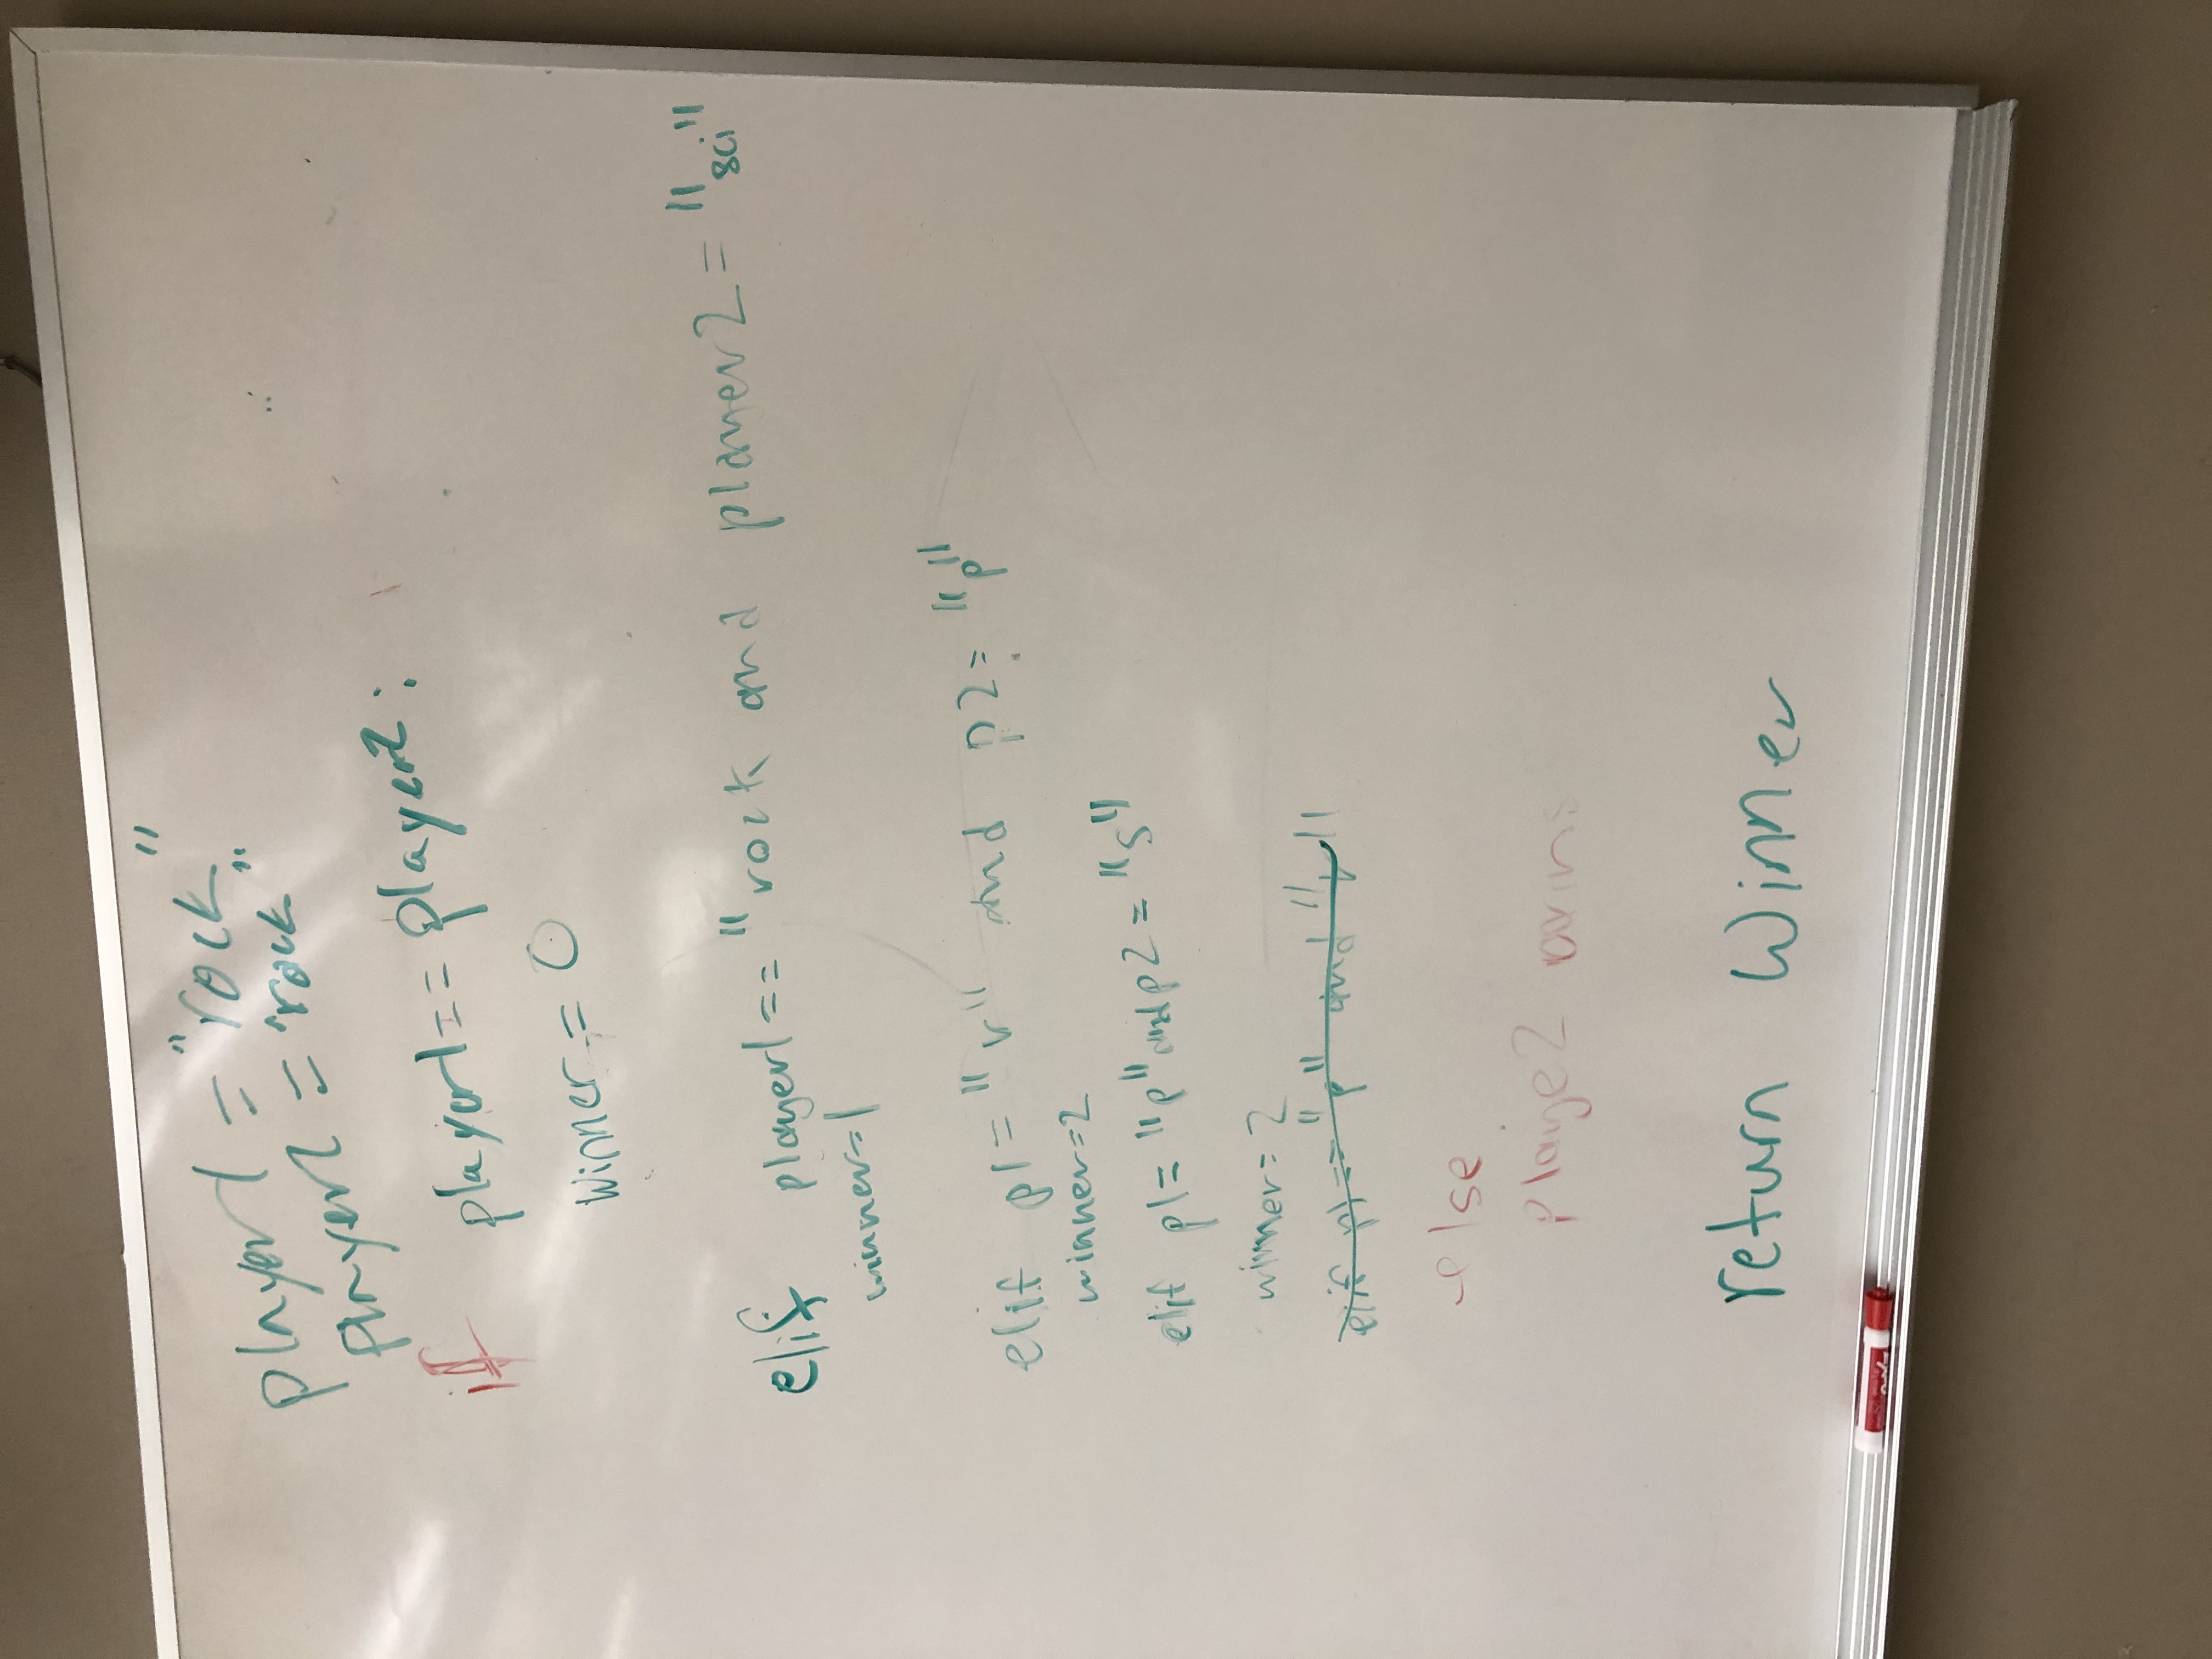 player1 = "rock"
player2 = "rock"
if player1 == player2:
winner = 0
elif player1 == "rock and player2 = "sci"
winner=1
elif p1 = "r" and p2 = "p"
winner=2
elif p1 = "p" and p2 = "s"
winner = 2
elif p1 == "p" and "r"
else
playe2 wins
return winner